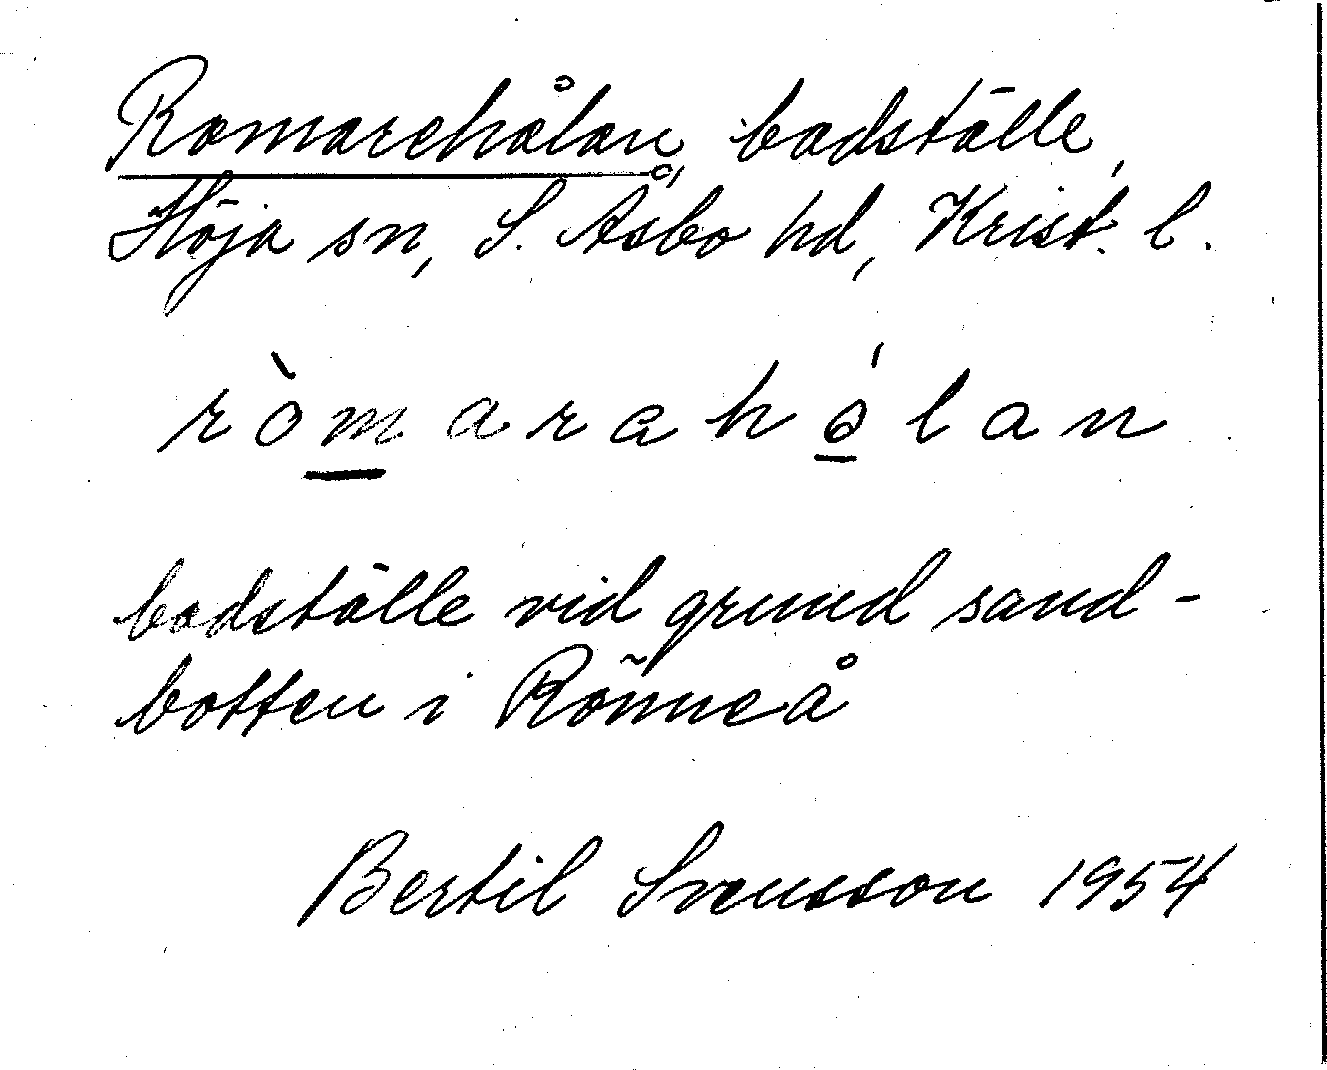 Romarehålan, badställe,
Höja sn, S. Åsbo hd, Krist. l.
ròmarahólan
badställe vid grund sand-
botten i Rönneå
Bertil Svensson 1954